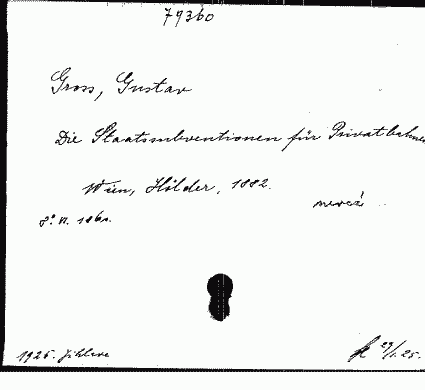 79360
Gross, Gustav
Die Staatssubventionen für Privatbahnen
Wien, Hölder, 1882.
8°. VI. 186 s.
1925. Jihlava 29/1. 25.